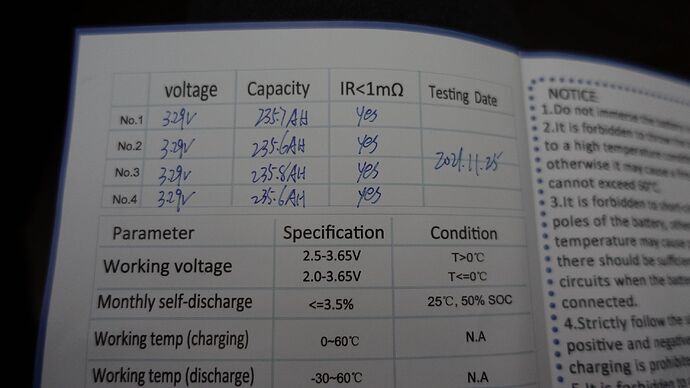 voltage Capacity IR<1mΩ Testing Date
No.1 3.29V 235.7AH yes
No.2 3.29V 235.6AH yes
2021.11.25
No.3 3.29V 235.8AH yes
No.4 3.29V 235.6AH yes
Parameter Specification Condition
Working voltage
2.5-3.65V T>0℃
2.0-3.65V T<=0℃
Monthly self-discharge <=3.5% 25℃, 50% SOC
Working temp (charging) 0~60℃ N.A
Working temp (discharge) -30~60℃ N.A
NOTICE
1.Do not immerse the battery
2.It is forbidden to throw the
to a high temperature
otherwise it may cause a
cannot exceed
3.It is forbidden to
poles of the battery,
temperature may cause
there should be
circuits when the
connected.
4.Strictly follow the
positive and
charging is